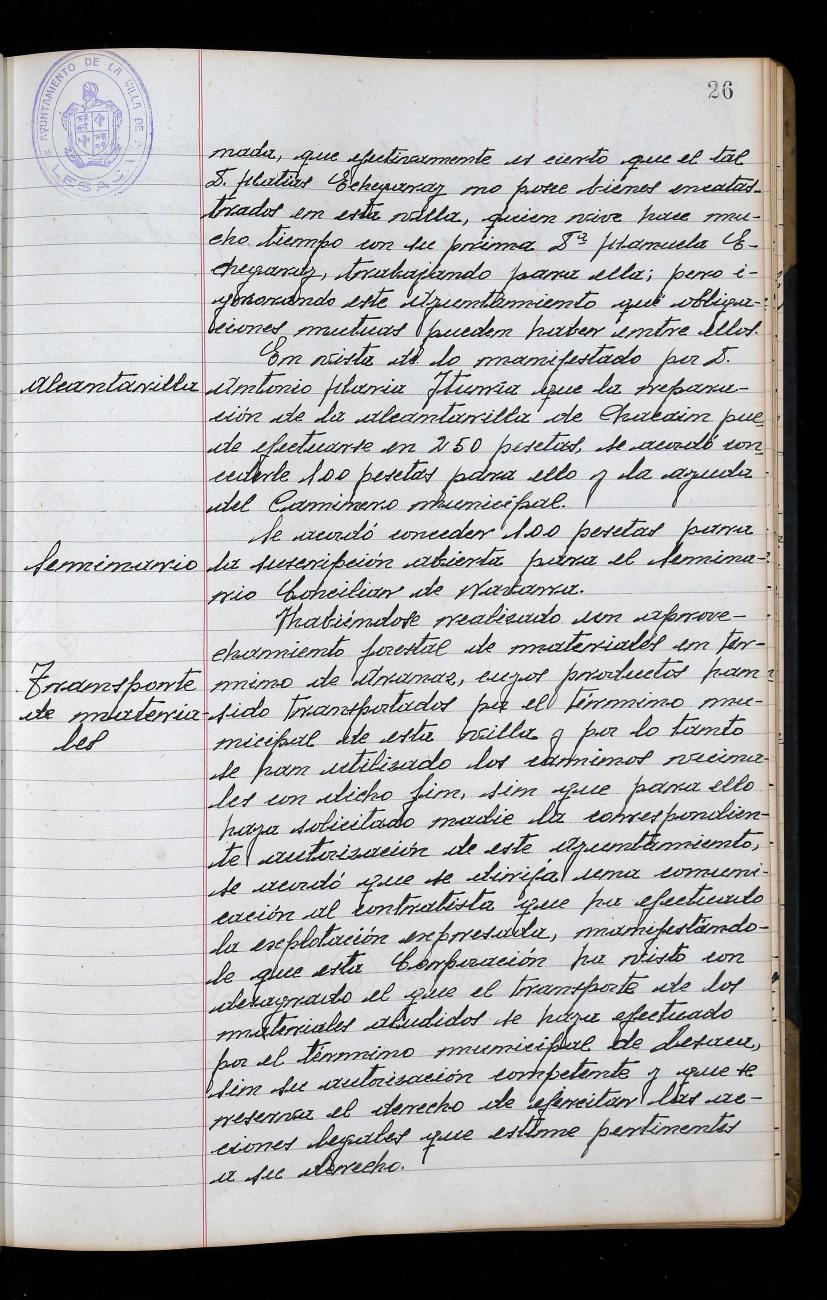 26
AYUNTAMIENTO DE LA VILLA DE
LESACA
mada, que efectivamente es cierto que el tal
D. Matías Echegaray no posee bienes encatas-
trados en esta villa, quien vive hace mu-
cho tiempo con su prima Dª Manuela E-
chegaray, trabajando para ella; pero i-
gnorando este Ayuntamiento qué obliga-
ciones mutuas pueden haber entre ellos.
En vista de lo manifestado por D.
Alcantarilla
Antonio Maria Iturria que la repara-
ción de la alcantarilla de pue-
de efectuarse en 250 pesetas, se acordó con-
cederle 100 pesetas para ello y la ayuda
del Caminero municipal.
Se acordó conceder 100 pesetas para
Seminario
la suscripción abierta para el Semina-
rio Conciliar de Navarra.
Habiéndose realizado un aprove-
chamiento forestal de materiales en tér-
Transporte
de materia-
les
mino de Aranaz, cuyos productos han
sido transportados por el término mu-
nicipal de esta villa y por lo tanto
se han utilizado los caminos vecina-
les con dicho fin, sin que para ello
haya solicitado nadie la correspondien-
te autorización de este Ayuntamiento,
se acordó que se dirija una comuni-
cación al contratista que ha efectuado
la explotación expresada, manifestándo-
le que esta Corporación ha visto con
desagrado el que el transporte de los
materiales aludidos se haya efectuado
por el término municipal de Lesaca,
sin su autorización competente y que se
reserva el derecho de ejercitar las ac-
ciones legales que estime pertinentes
a su derecho.